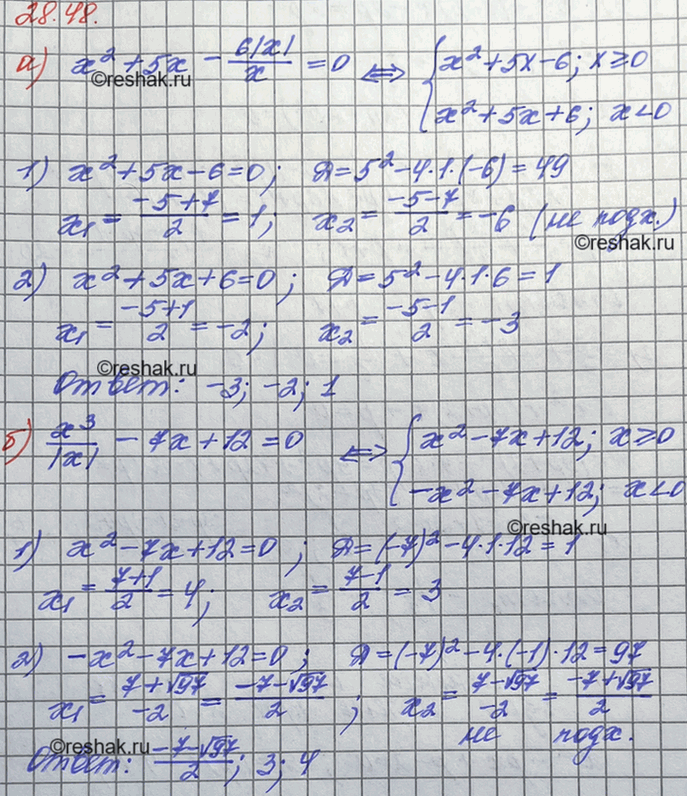 28.48.
а) x² + 5x − 6|x|/x = 0 ⟺ { x² + 5x − 6; x ≥ 0
x² + 5x + 6; x < 0
©reshak.ru
1) x² + 5x − 6 = 0; Д = 5² − 4·1·(−6) = 49
x₁ = (−5+7)/2 = 1; x₂ = (−5−7)/2 = −6 (не подх.)
©reshak.ru
2) x² + 5x + 6 = 0; Д = 5² − 4·1·6 = 1
x₁ = (−5+1)/2 = −2; x₂ = (−5−1)/2 = −3
©reshak.ru
Ответ: −3; −2; 1
б) x³/|x| − 7x + 12 = 0 ⟺ { x² − 7x + 12; x ≥ 0
−x² − 7x + 12; x < 0
©reshak.ru
1) x² − 7x + 12 = 0; Д = (−7)² − 4·1·12 = 1
x₁ = (7+1)/2 = 4; x₂ = (7−1)/2 = 3
2) −x² − 7x + 12 = 0; Д = (−7)² − 4·(−1)·12 = 97
x₁ = (7+√97)/−2 = (−7−√97)/2; x₂ = (7−√97)/−2 = (−7+√97)/2
не подх.
©reshak.ru
Ответ: (−7−√97)/2; 3; 4